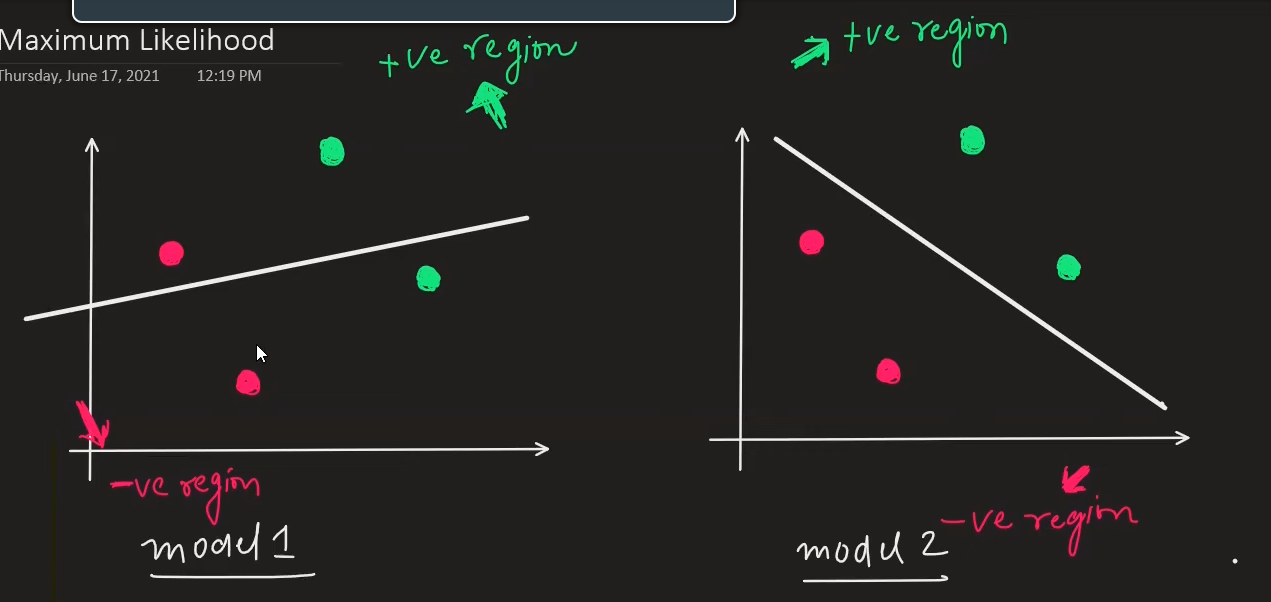 Maximum Likelihood
Thursday, June 17, 2021 12:19 PM
+ve region
+ve region
-ve region
model 1
-ve region
model 2